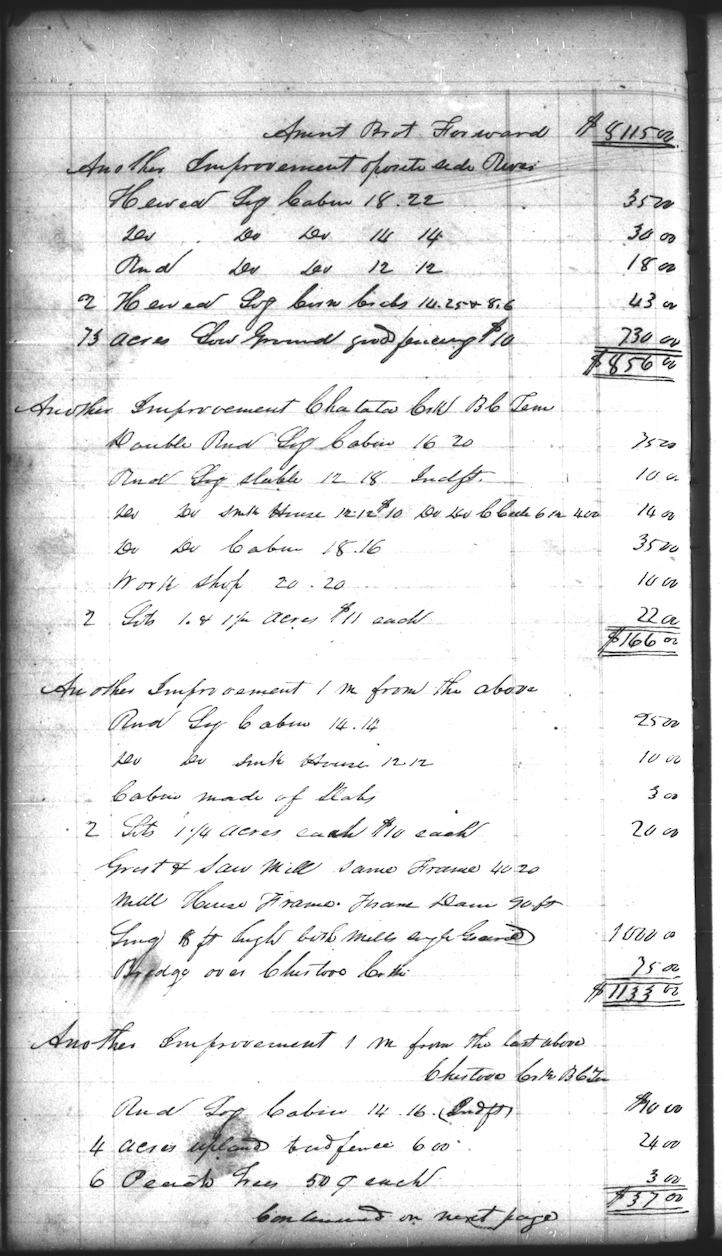 Amnt Brot Forward $ 8115 00
Another Improvement oposite side River
Hewed Log Cabin 18.22 35 00
Do Do Do 14 14 30 00
Rnd Do Do 12 12 18 00
2 Hewed Log Corn Cribs 14.25 & 8.6 43 00
73 acres Low Ground good fencing $10 730 00
$856 00
Another Improvement Chatata Crk B C Ten
Double Rnd Log Cabin 16 20 75 00
Rnd Log stable 12 18 Indft. 10 0
Do Do Smk House 12 12 $10 Do Do C Crib 6 12 4 00 14 00
Do Do Cabin 18.16 35 00
Work shop 20.20 10 00
2 Lots 1. & 1 1/2 acres $11 each 22 00
$166 00
Another Improvement 1 m from the above
Rnd Log Cabin 14.14 25 00
Do Do Smk House 12 12 10 00
Cabin made of Slabs 3 00
2 Lots 1 1/4 acres each $10 each 20 00
Grist & Saw Mill same Frame 40 20
Mill House Frame. Frame Dam 90 ft
Long 8 ft high both mills Geared 1000 0
Bridge over Chestooe Crk 75 00
$1133 00
Another Improvement 1 m from the last above
Chestooe Crk B C Ten
Rnd Log Cabin 14.16. (Indft) $10 00
4 acres upland bad fence 6 00 24 00
6 Peach Trees 50 ¢ each 3 00
$37 00
Continued on next page